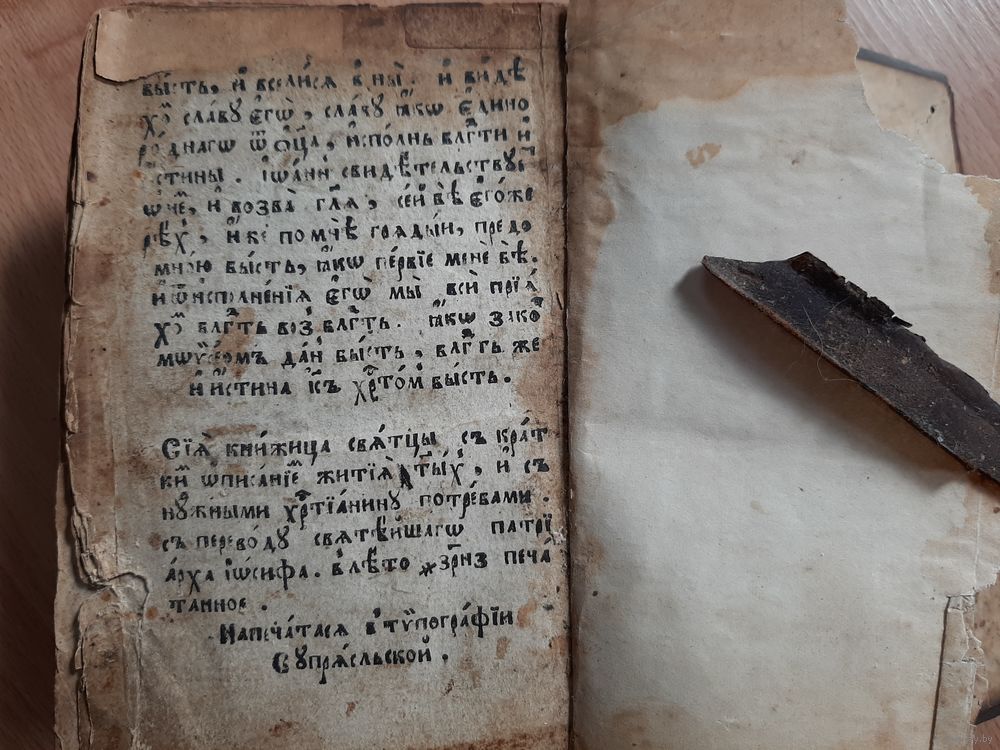 бы́сть, и҆ всели́сѧ в ны̀. и҆ ви́дѣ
хо́ сла́вꙋ є҆гѡ̀, сла́вꙋ ꙗ҆́кѡ є҆ди́но
ро́днагѡ ѿ ѻ҆ц҃а̀, и҆спо́лнь бл҃гⷣти и҆
стины. і҆ѡа́ннъ свидѣ́тельствꙋетъ
ѡ҆ не́мъ, и҆ возва̀ гл҃ѧ, се́й бѣ̀ є҆го́же
рѣ́хъ, и҆́же по мнѣ̀ грѧды́и, предо
мно́ю бы́сть, ꙗ҆́кѡ пе́рвїе менѐ бѣ̀.
и҆ ѿ и҆сполне́нїѧ є҆гѡ̀ мы̀ всѝ прїѧ́
хоⷨ бл҃гⷣть воз̾ бл҃гⷣть. ꙗ҆́кѡ зако́
мѡѷсе́омъ да́нъ бы́сть, бл҃гⷣть же
и҆ и҆́стина і҆с҃ъ хрⷭ҇то́м бы́сть.
Сїѧ̀ кни́жица свѧ́тцы съ кра́т
ки́мъ ѡ҆писа́нїеⷨ житїѧ̀ ст҃ы́хъ, и҆ съ
нꙋ́жными хрⷭ҇тїа́нинꙋ потре́бами.
съ перево́дꙋ свѧтѣ́йшагѡ патрїа́
а́рха і҆ѡ́сифа. в лѣ́то ҂зр҃нз печа́
танное.
Напеча́тасѧ в тѷпогра́фїи
Сꙋпрѧ́сльской.